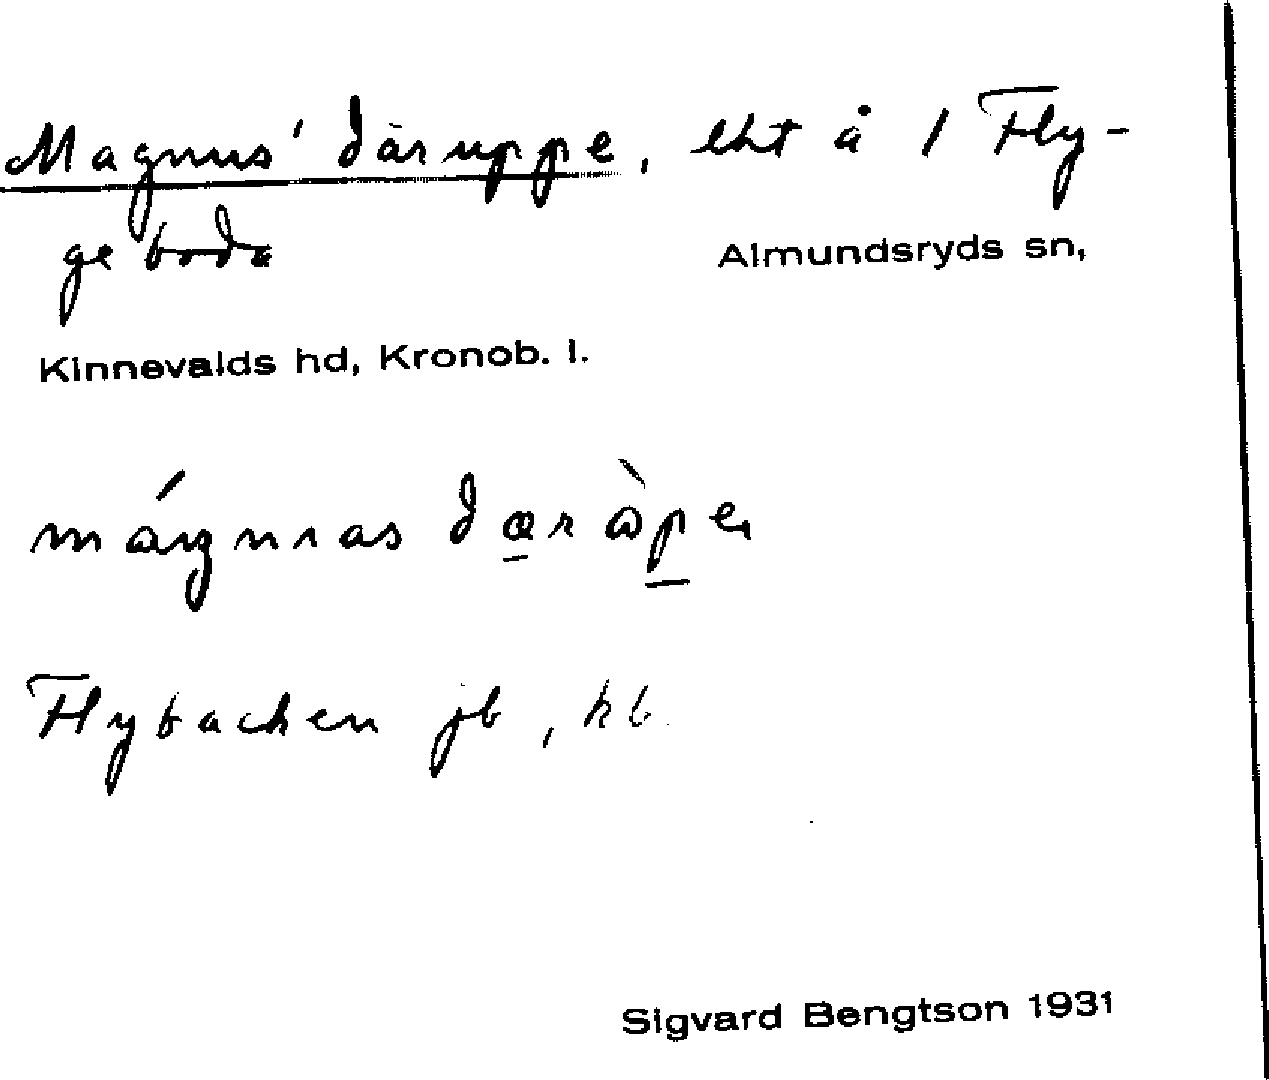 Magnus' däruppe, lht å 1 Fly-
geboda
Almundsryds sn,
Kinnevalds hd, Kronob. l.
Flybacken jb, kb.
Sigvard Bengtson 1931